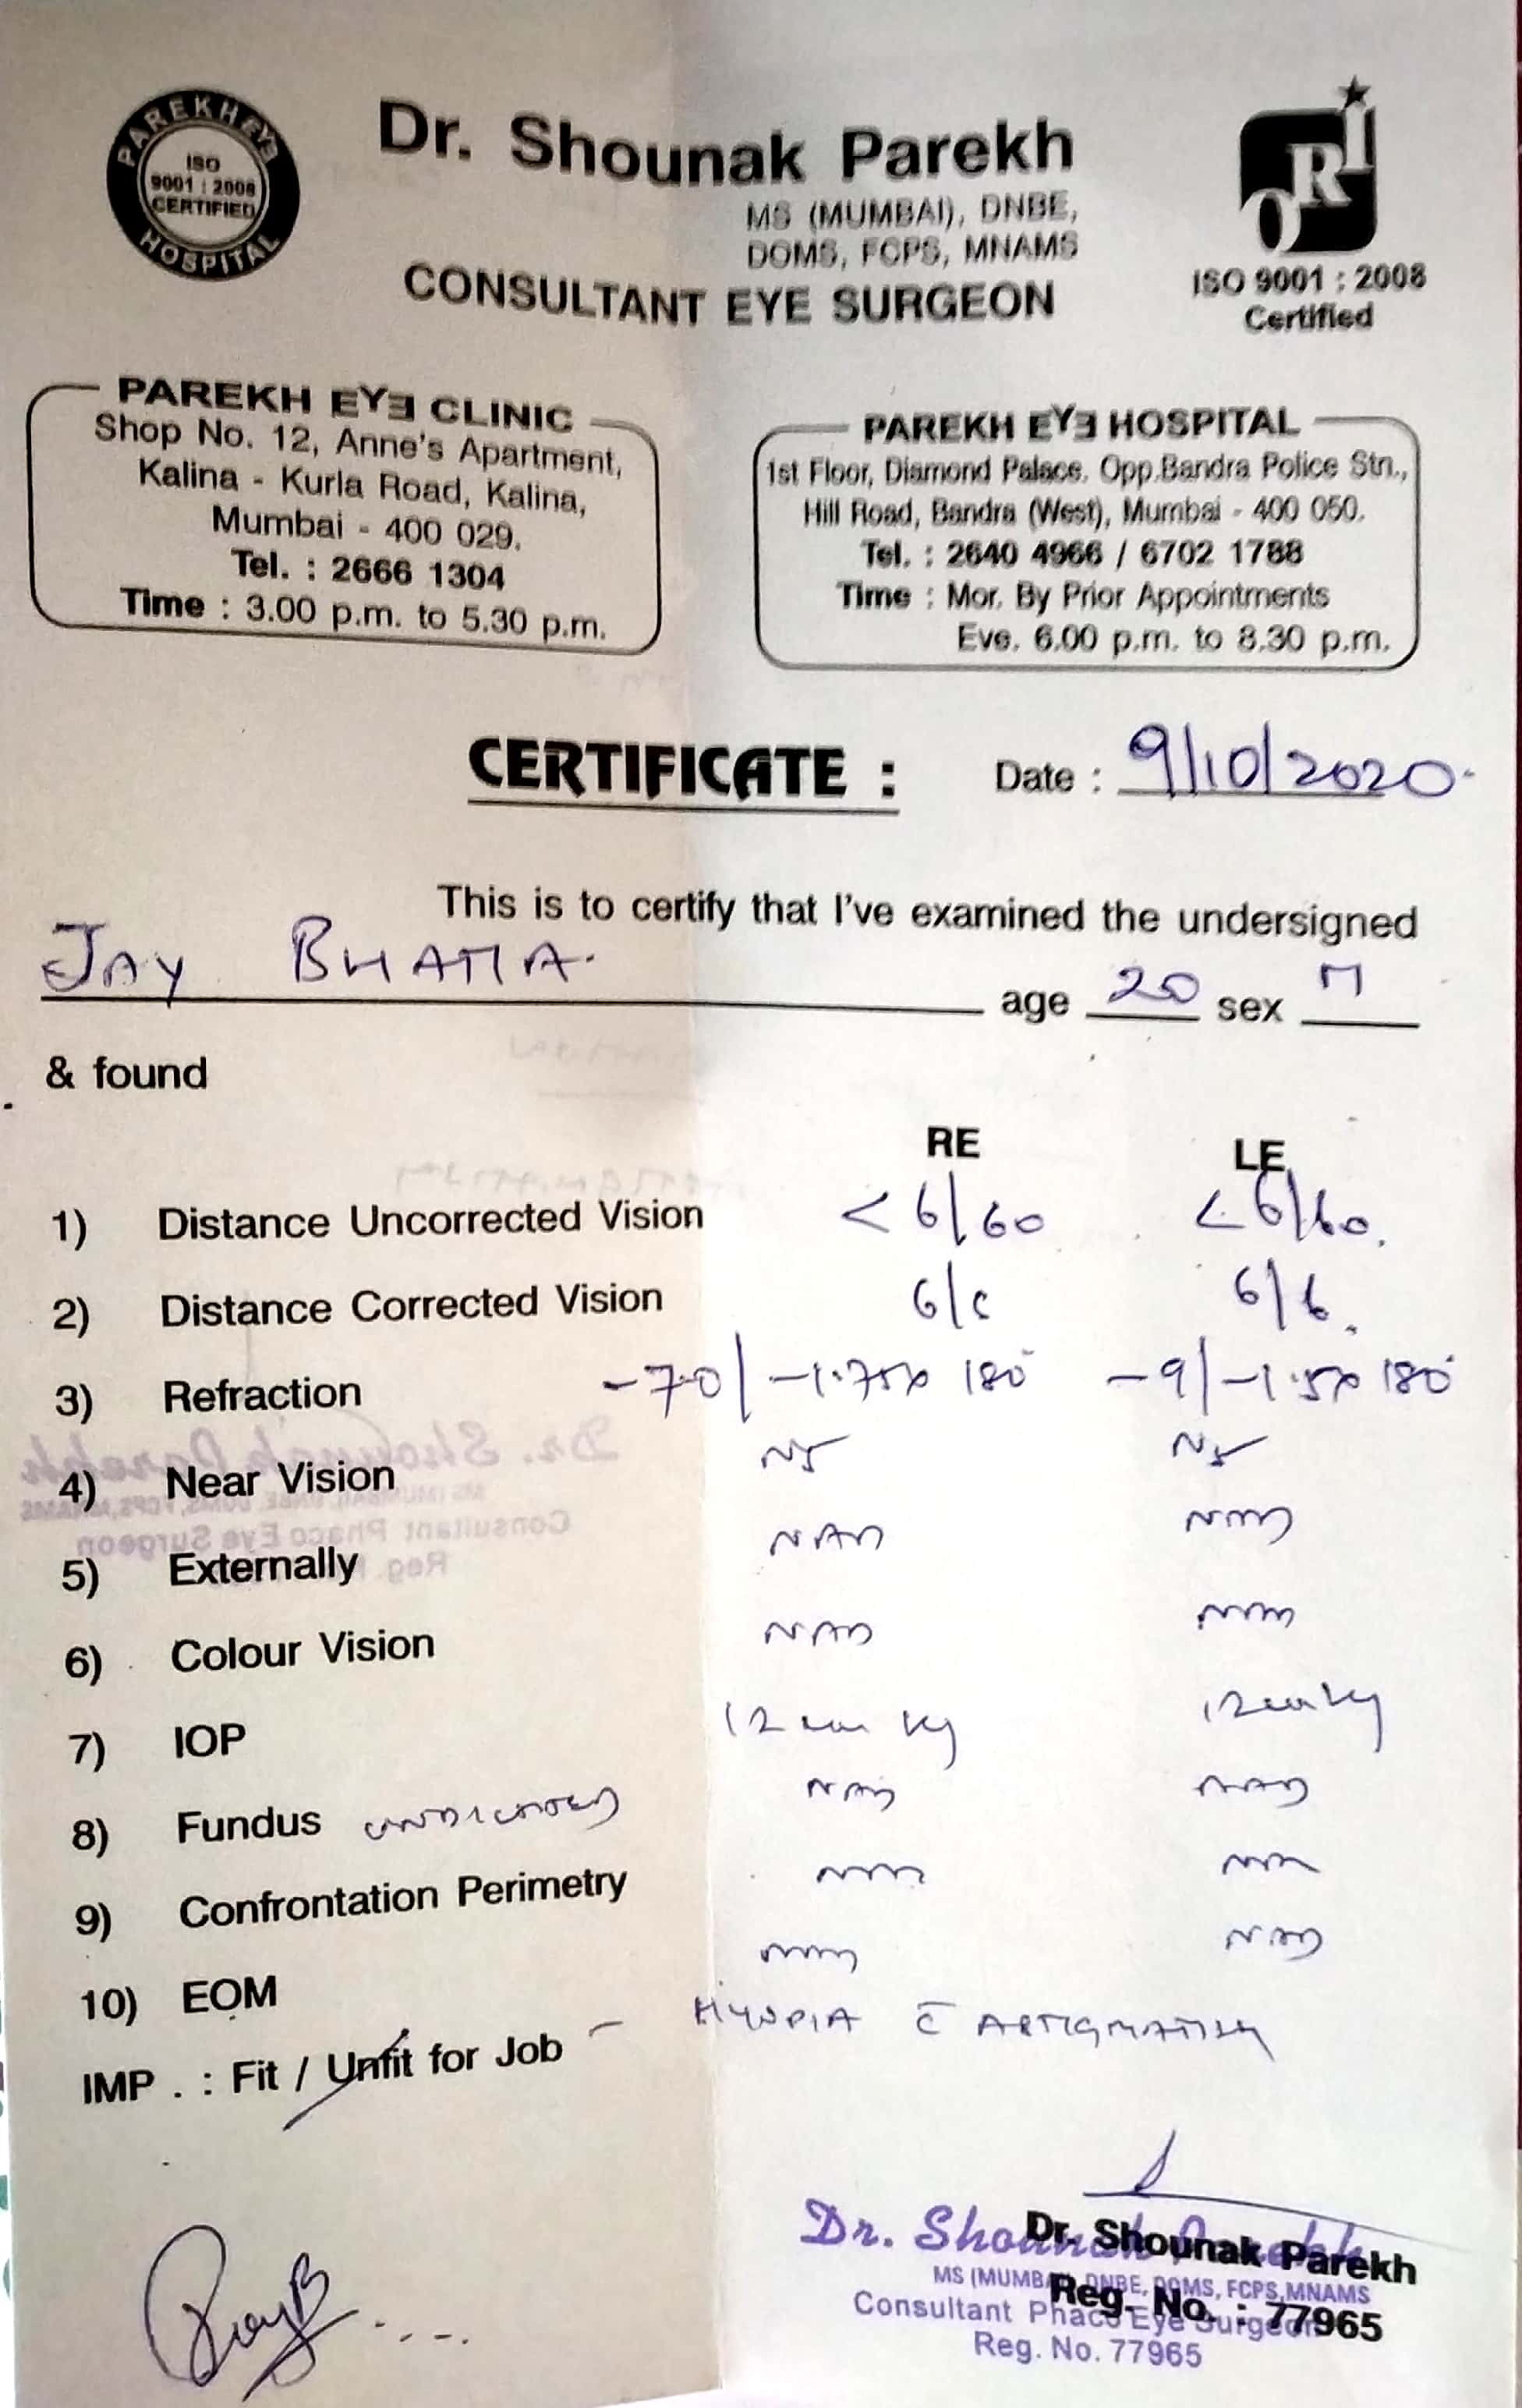 PAREKH EYE HOSPITAL
ISO
9001 : 2008
CERTIFIED
Dr. Shounak Parekh
MS (MUMBAI), DNBE,
DOMS, FCPS, MNAMS
CONSULTANT EYE SURGEON
ORI
ISO 9001 : 2008
Certified
PAREKH EYE CLINIC
Shop No. 12, Anne's Apartment,
Kalina - Kurla Road, Kalina,
Mumbai - 400 029.
Tel. : 2666 1304
Time : 3.00 p.m. to 5.30 p.m.
PAREKH EYE HOSPITAL
1st Floor, Diamond Palace, Opp.Bandra Police Stn.,
Hill Road, Bandra (West), Mumbai - 400 050.
Tel. : 2640 4966 / 6702 1788
Time : Mor. By Prior Appointments
Eve. 6.00 p.m. to 8.30 p.m.
CERTIFICATE : Date : 9/10/2020
This is to certify that I've examined the undersigned
JAY BHATIA. age 20 sex M
& found
RE LE
1) Distance Uncorrected Vision < 6/60 < 6/60.
2) Distance Corrected Vision 6/6 6/6.
3) Refraction -7.0/-1.75x180° -9/-1.5x180°
4) Near Vision N5 N5
5) Externally NAD NAD
6) Colour Vision NAD NAD
7) IOP 12 mm Hg 12 mm Hg
8) Fundus UNDILATED NAD NAD
9) Confrontation Perimetry NAD NAD
10) EOM NAD NAD
IMP . : Fit / Unfit for Job - MYOPIA C ASTIGMATISM
Dr. Shounak Parekh
Reg. No. : 77965
Dr. Shounak Parekh
MS (MUMBAI), DNBE, DOMS, FCPS,MNAMS
Consultant Phaco Eye Surgeon
Reg. No. 77965